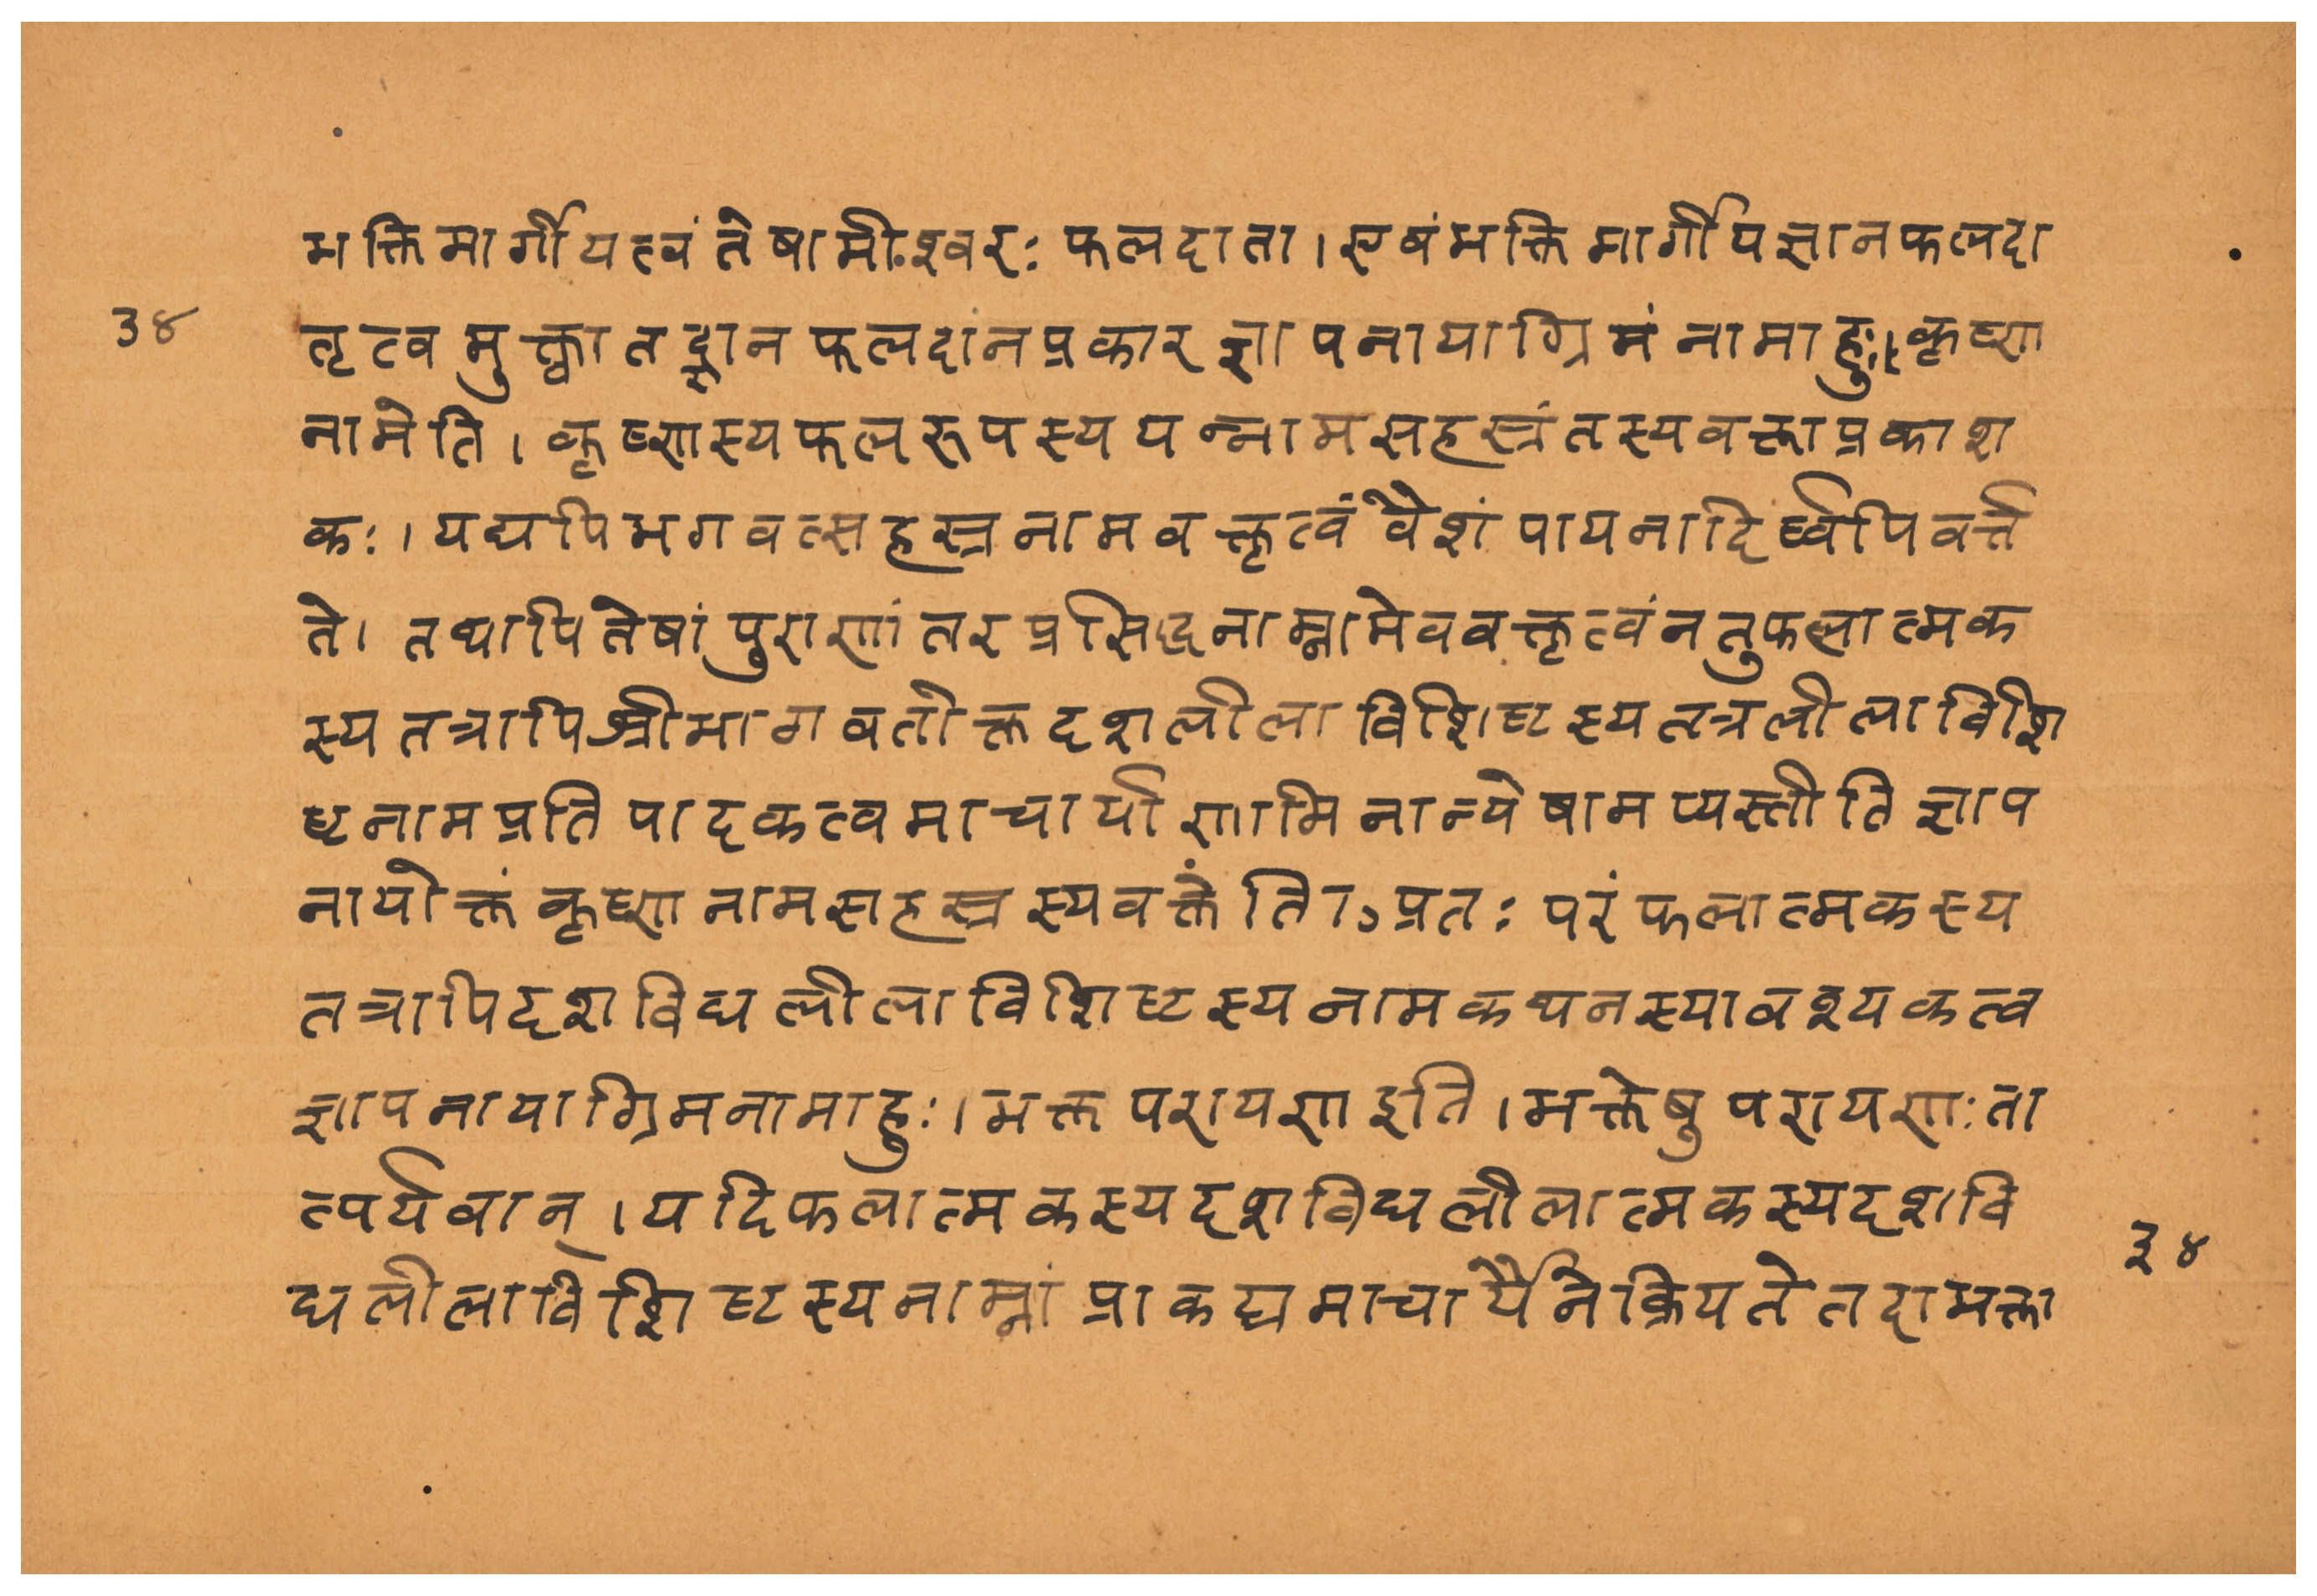 भक्तिमार्गीयत्वंतेषामीश्वरः फलदाता । एषंभक्तिमार्गीपज्ञानफलदा
३४
तृत्वमुक्त्वातद्ज्ञानफलदांनप्रकारज्ञापनायाग्रिमंनामाहुः। कृष्ण
नामेति । कृष्णस्यफलरूपस्ययन्नामसहस्त्रंतस्यवक्ताप्रकाश
कः । यद्यपिभगवत्सहस्त्रनामवक्तृत्वंवैशंपायनादिर्ष्वपिवर्त्त
ते । तथापितेषांपुराणांतरप्रसिद्धनाम्नामेववक्तृत्वंनतुफलात्मक
स्यतत्रापिश्रीभागवतोक्तदशलीलाविशिष्टस्यतत्रलीलाविशि
ष्टनामप्रतिपादकत्वमाचार्याणामिनान्येषामप्यस्तीतिज्ञाप
नायोक्तंकृष्णनामसहस्त्रस्यवक्तेति । प्रतः परंफलात्मकस्य
तत्रापिदशविधलीलाविशिष्टस्यनामकथनस्यावश्यकत्व
ज्ञापनायाग्रिमनामाहुः । भक्तपरायणइति । भक्तेषुपरायणः ता
त्पर्यवान् । यदिफलात्मकस्यदशविधलीलात्मकस्यदशवि
३४
धलीलाविशिष्टस्यनाम्नांप्राकट्यमाचार्यैर्नक्रियतेतदाभक्ता